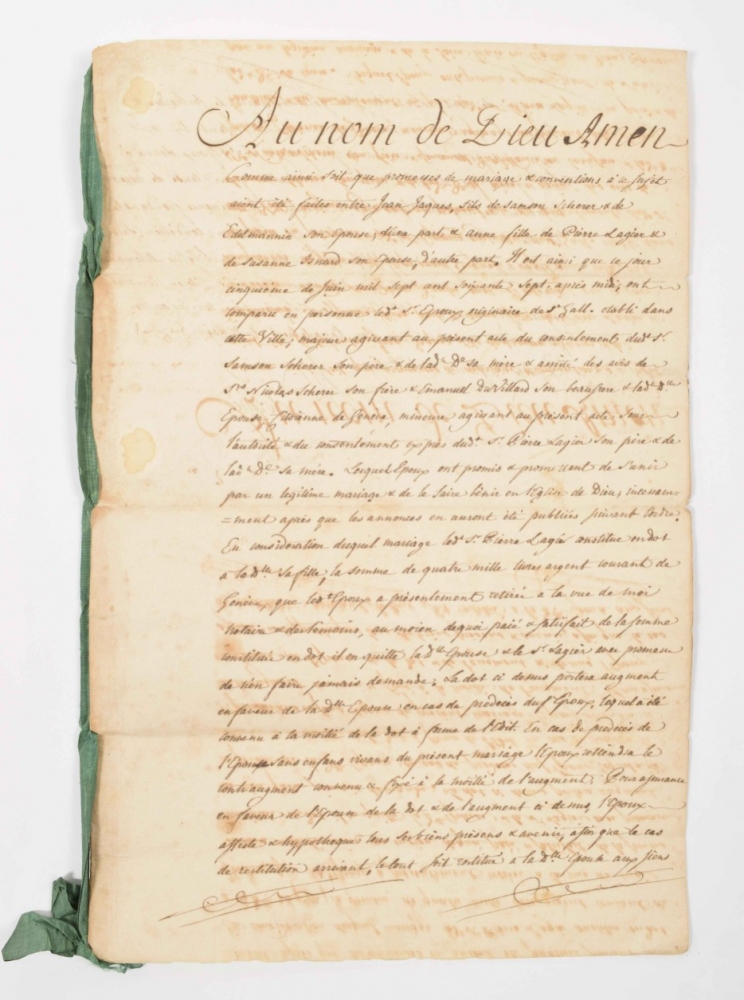 Au nom de Dieu Amen
Comme ainsi soit que promesses de mariage & conventions à ce sujet
aient été faites entre Jean Jaques, fils de Samson Scherer & de
Edelmannin son épouse, d'une part & anne fille de Pierre Lagier &
de Susanne Isnard son Epouse, d'autre part. Il est ainsi que ce jour
cinquième de Juin mil sept cent soixante sept. après midi, ont
comparu en personne led.t S.r Epoux originaire de S.t Gall. établi dans
cette Ville, majeur agissant au présent acte du consentement dud.t S.r
Samson Scherer son père & de lad.e D.e sa mère & assisté des avis de
S.rs Nicolas Scherer son frère & Emanuel DuVillard son beaufrere & lad.e D.lle
Epouse Citoienne de Genève, mineure agissant au présent acte sous
l'autorité & du consentement exprès dud.t S.r Pierre Lagier son père & de
lad.e D.e sa mère. Lesquel Epoux ont promis & promettent de s'unir
par un légitime mariage & de le faire bénir en l'Eglise de Dieu, incessam-
=ment après que les annonces en auront été publiées suivant l'ordre.
En considération duquel mariage led.t S.r Pierre Lagier constitue en dot
à lad.e D.lle sa fille, la somme de quatre mille livres argent courant de
Genève, que led.t Epoux a présentement retiré à la vue de moi
Notaire & des témoins, au moien de quoi paié & satisfait de la somme
constituée en dot il en quitte la d.e Epouse & le S.r Lagier avec promesse
de n'en faire jamais demande; La dot ci dessus portera augment
en faveur de la D.lle Epouse en cas de prédécès dud.t Epoux, lequel a été
convenu à la moitié de la dot à forme de l'Edit. En cas de prédécès de
l'Epouse sans enfans vivans du présent mariage l'Epoux retiendra le
contraugment convenu & fixé à la moitié de l'augment; Pour assurance
en faveur de l'Epouse de la dot & de l'augment ci dessus, l'Epoux
affecte & hypothèque tous ses biens présens & avenir, afin que le cas
de restitution arrivant, le tout soit restitué à la D.lle Epouse aux siens